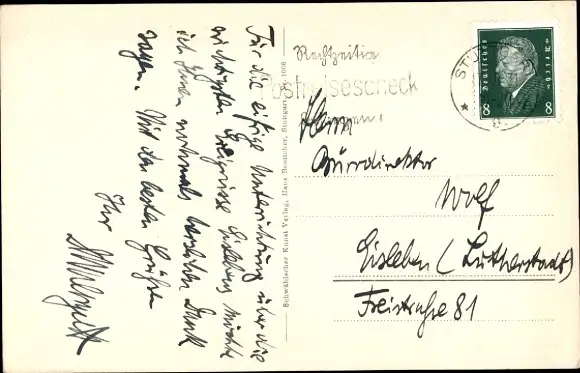 Für die eifrige Unterrichtung über die
wichtigsten Ereignisse Eislebens möchte
ich Ihnen nochmals herzlichen Dank
sagen. Mit den besten Grüßen
Ihr
Schwäbischer Kunst Verlag, Hans Boettcher, Stuttgart
Rechtzeitig
Postreisescheck
Deutsches Reich
8 8
Herrn
Bürodirektor
Wolf
Eisleben (Lutherstadt)
Freistraße 81